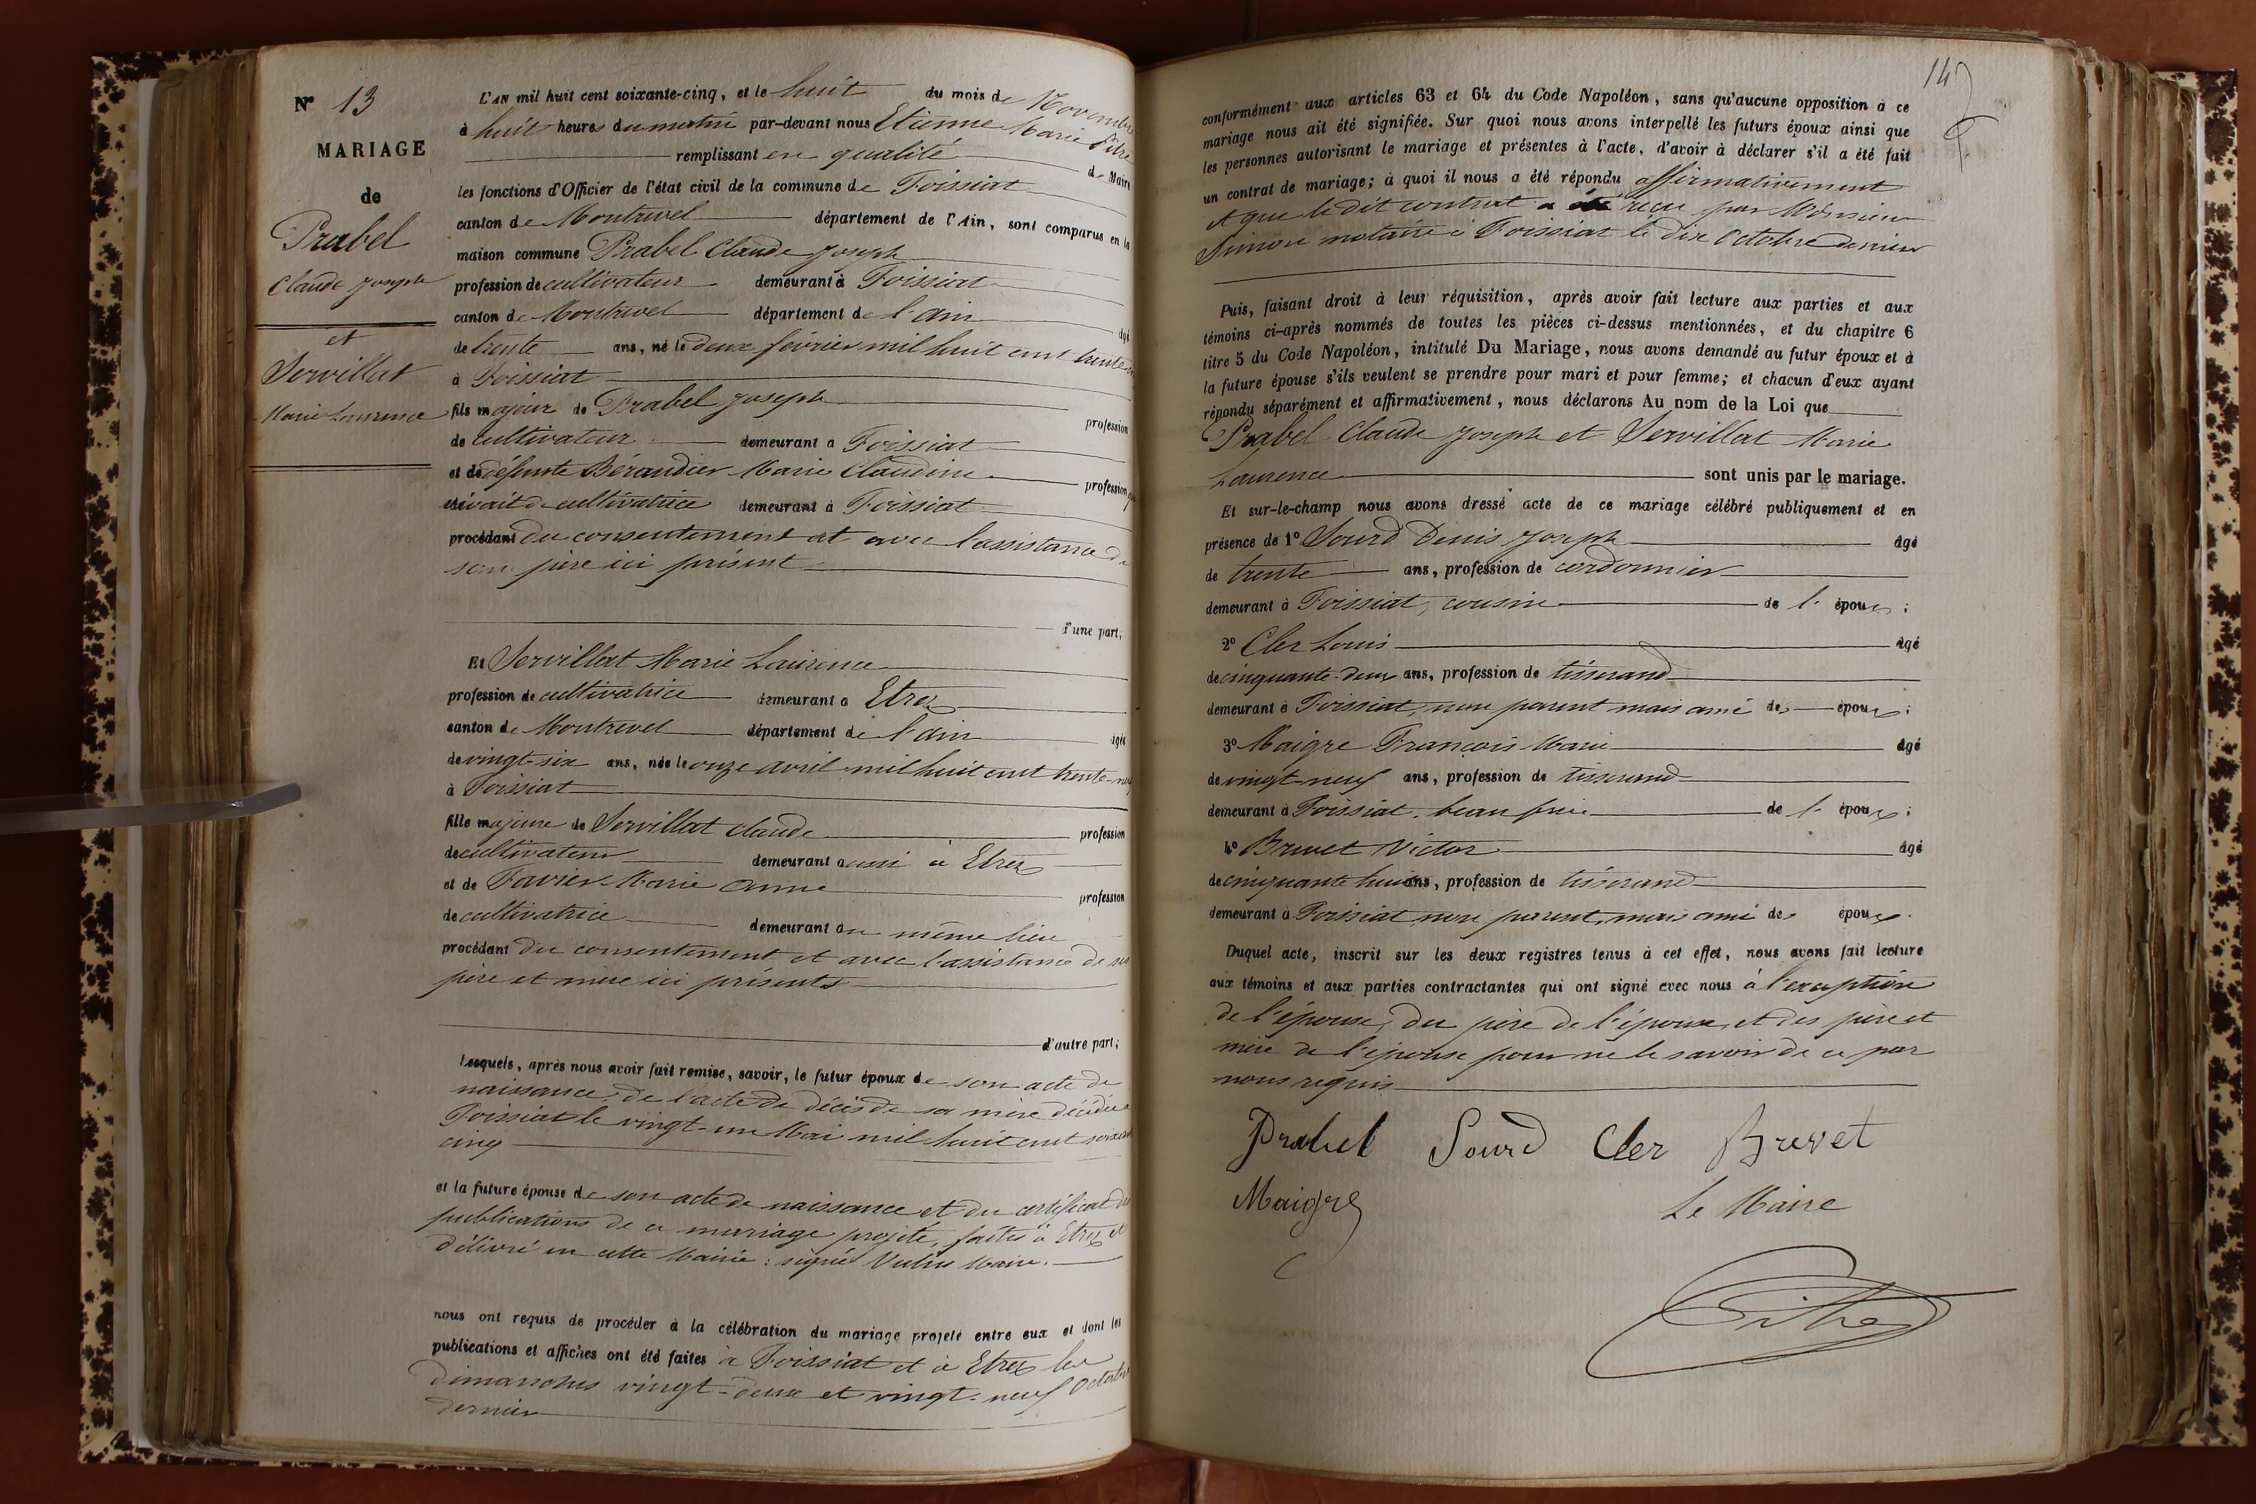 N° 13
MARIAGE
de
Prabel
Claude Joseph
et
Servillat
Marie Laurence
L'AN mil huit cent soixante-cinq, et le huit du mois de Novembre
à huit heures du matin par-devant nous Etienne Marie Pitre
remplissant en qualité de Maire
les fonctions d'Officier de l'état civil de la commune de Foissiat
canton de Montrevel département de l'Ain, sont comparus en la
maison commune Prabel Claude Joseph
profession de cultivateur demeurant à Foissiat
canton de Montrevel département de l'ain âgé
de trente ans, né le deux février mil huit cent trente
à Foissiat
fils majeur de Prabel Joseph profession
de cultivateur demeurant à Foissiat
et de défunte Bérandier Marie Claudine profession
vivait de cultivatrice demeurant à Foissiat
procédant du consentement et avec l'assistance de
son père ici présent
d'une part;
Et Servillat Marie Laurence
profession de cultivatrice demeurant à Etrez
canton de Montrevel département de l'ain âgée
de vingt-six ans, née le onze avril mil huit cent trente-neuf
à Foissiat
fille majeure de Servillat Claude profession
de cultivateur demeurant aussi à Etrez
et de Favier Marie Anne profession
de cultivatrice demeurant au même lieu
procédant du consentement et avec l'assistance de ses
père et mère ici présents
d'autre part;
Lesquels, après nous avoir fait remise, savoir, le futur époux de son acte de
naissance, de l'acte de décès de sa mère décédée à
Foissiat le vingt-un Mai mil huit cent soixante
cinq
et la future épouse de son acte de naissance et du certificat des
publications de ce mariage projeté, faites à Etrez et
délivré en cette Mairie : signé Maire.
nous ont requis de procéder à la célébration du mariage projeté entre eux et dont les
publications et affiches ont été faites à Foissiat et à Etrez les
dimanches vingt-deux et vingt-neuf Octobre
dernier
147
conformément aux articles 63 et 64 du Code Napoléon, sans qu'aucune opposition à ce
mariage nous ait été signifiée. Sur quoi nous avons interpellé les futurs époux ainsi que
les personnes autorisant le mariage et présentes à l'acte, d'avoir à déclarer s'il a été fait
un contrat de mariage; à quoi il nous a été répondu affirmativement
et que le dit contrat a été reçu par Monsieur
Simon notaire à Foissiat le dix Octobre dernier
Puis, faisant droit à leur réquisition, après avoir fait lecture aux parties et aux
témoins ci-après nommés de toutes les pièces ci-dessus mentionnées, et du chapitre 6
titre 5 du Code Napoléon, intitulé Du Mariage, nous avons demandé au futur époux et à
la future épouse s'ils veulent se prendre pour mari et pour femme; et chacun d'eux ayant
répondu séparément et affirmativement, nous déclarons Au nom de la Loi que
Prabel Claude Joseph et Servillat Marie
Laurence sont unis par le mariage.
Et sur-le-champ nous avons dressé acte de ce mariage célébré publiquement et en
présence de 1° Sourd Denis Joseph âgé
de trente ans, profession de cordonnier
demeurant à Foissiat, cousin de l' époux;
2° Cler Louis âgé
de cinquante-deux ans, profession de tisserand
demeurant à Foissiat, non parent mais ami des époux;
3° Maigre François Marie âgé
de vingt-neuf ans, profession de tisserand
demeurant à Foissiat, beau frère de l' époux;
4° Brevet Victor âgé
de cinquante huit ans, profession de tisserand
demeurant à Foissiat, non parent, mais ami des époux.
Duquel acte, inscrit sur les deux registres tenus à cet effet, nous avons fait lecture
aux témoins et aux parties contractantes qui ont signé avec nous à l'exception
de l'épouse, du père de l'époux, et des père et
mère de l'épouse pour ne le savoir de ce par
nous requis
Prabel Sourd Cler Brevet
Maigre Le Maire
Pitre